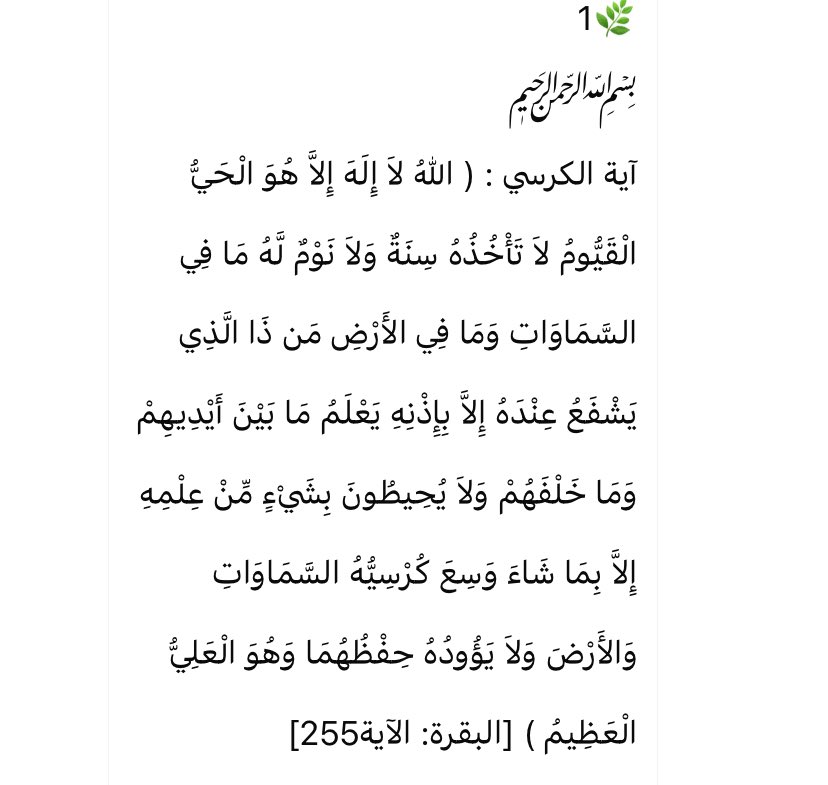 🌿1
﷽
آية الكرسي : ( اللهُ لاَ إِلَهَ إِلاَّ هُوَ الْحَيُّ
الْقَيُّومُ لاَ تَأْخُذُهُ سِنَةٌ وَلاَ نَوْمٌ لَّهُ مَا فِي
السَّمَاوَاتِ وَمَا فِي الأَرْضِ مَن ذَا الَّذِي
يَشْفَعُ عِنْدَهُ إِلاَّ بِإِذْنِهِ يَعْلَمُ مَا بَيْنَ أَيْدِيهِمْ
وَمَا خَلْفَهُمْ وَلاَ يُحِيطُونَ بِشَيْءٍ مِّنْ عِلْمِهِ
إِلاَّ بِمَا شَاءَ وَسِعَ كُرْسِيُّهُ السَّمَاوَاتِ
وَالأَرْضَ وَلاَ يَؤُودُهُ حِفْظُهُمَا وَهُوَ الْعَلِيُّ
الْعَظِيمُ ) [البقرة: الآية255]